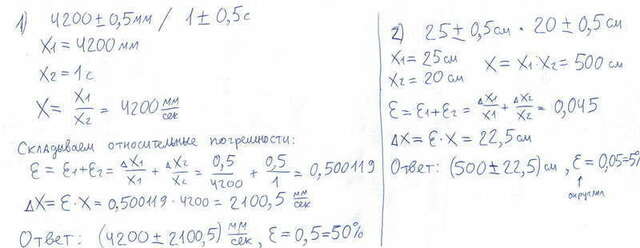 1) 4200±0,5мм / 1±0,5с
X1=4200мм
X2=1с
X= X1/X2 = 4200 мм/сек
Складываем относительные погрешности:
ε = ε1+ε2 = ΔX1/X1 + ΔX2/X2 = 0,5/4200 + 0,5/1 = 0,500119
ΔX = ε·X = 0,500119·4200 = 2100,5 мм/сек
Ответ: (4200±2100,5) мм/сек, ε=0,5=50%
2) 25±0,5см · 20±0,5см
X1=25см
X2=20см
X=X1·X2=500 см
ε=ε1+ε2= ΔX1/X1 + ΔX2/X2 = 0,045
ΔX=ε·X=22,5см
Ответ: (500±22,5)см, ε=0,05=5%
↑
округлил